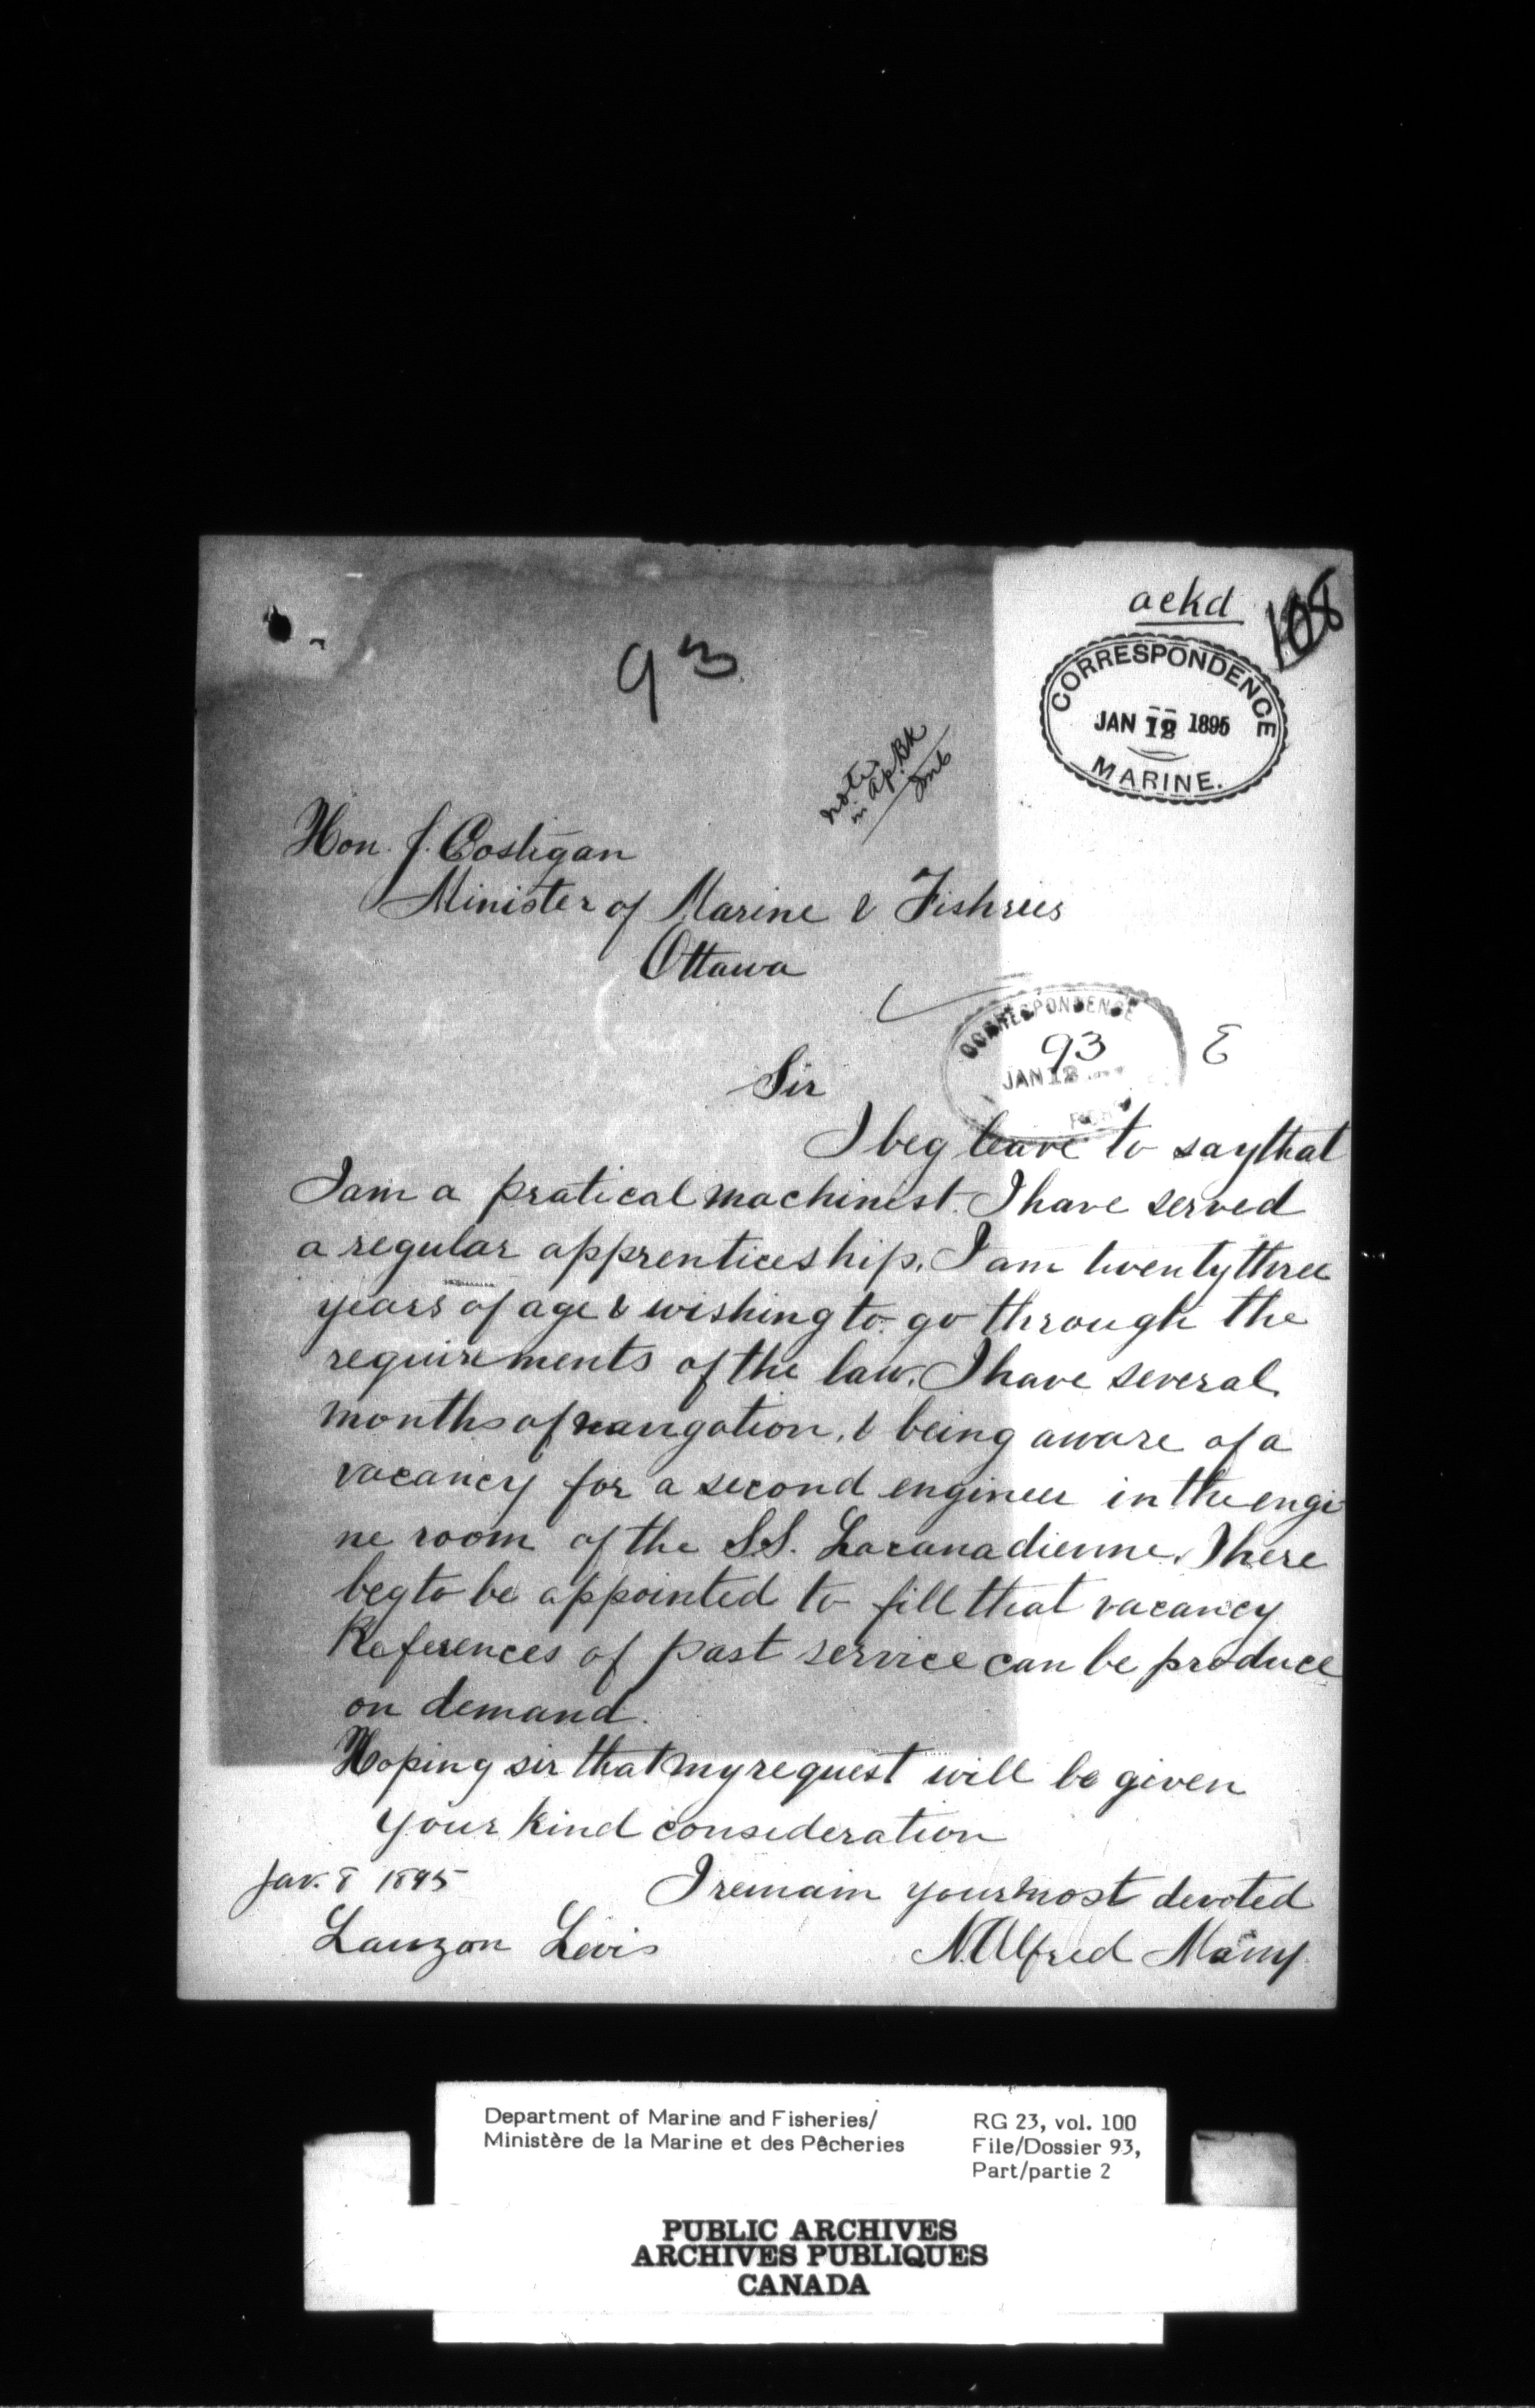 ackd
108
CORRESPONDENCE
JAN 12 1895
MARINE.
93
noted
in ap. Bk
Hon. J. Costigan
Minister of Marine & Fishries
Ottawa
CORRESPONDENCE
93
JAN 12
E
Sir
I beg leave to say that
I am a pratical machinest. I have served
a regular apprenticeship. I am twenty three
years of age & wishing to go through the
requirements of the law. I have several
months of navigation, & being aware of a
vacancy for a second engineer in the engi
ne room of the S.S. Lacanadienne. I here
beg to be appointed to fill that vacancy
References of past service can be produce
on demand.
Hoping sir that my request will be given
your kind consideration
Jan. 8 1895
I remain your most devoted
Lauzon Levis
N. Alfred
Department of Marine and Fisheries/
Ministère de la Marine et des Pêcheries
RG 23, vol. 100
File/Dossier 93,
Part/partie 2
PUBLIC ARCHIVES
ARCHIVES PUBLIQUES
CANADA